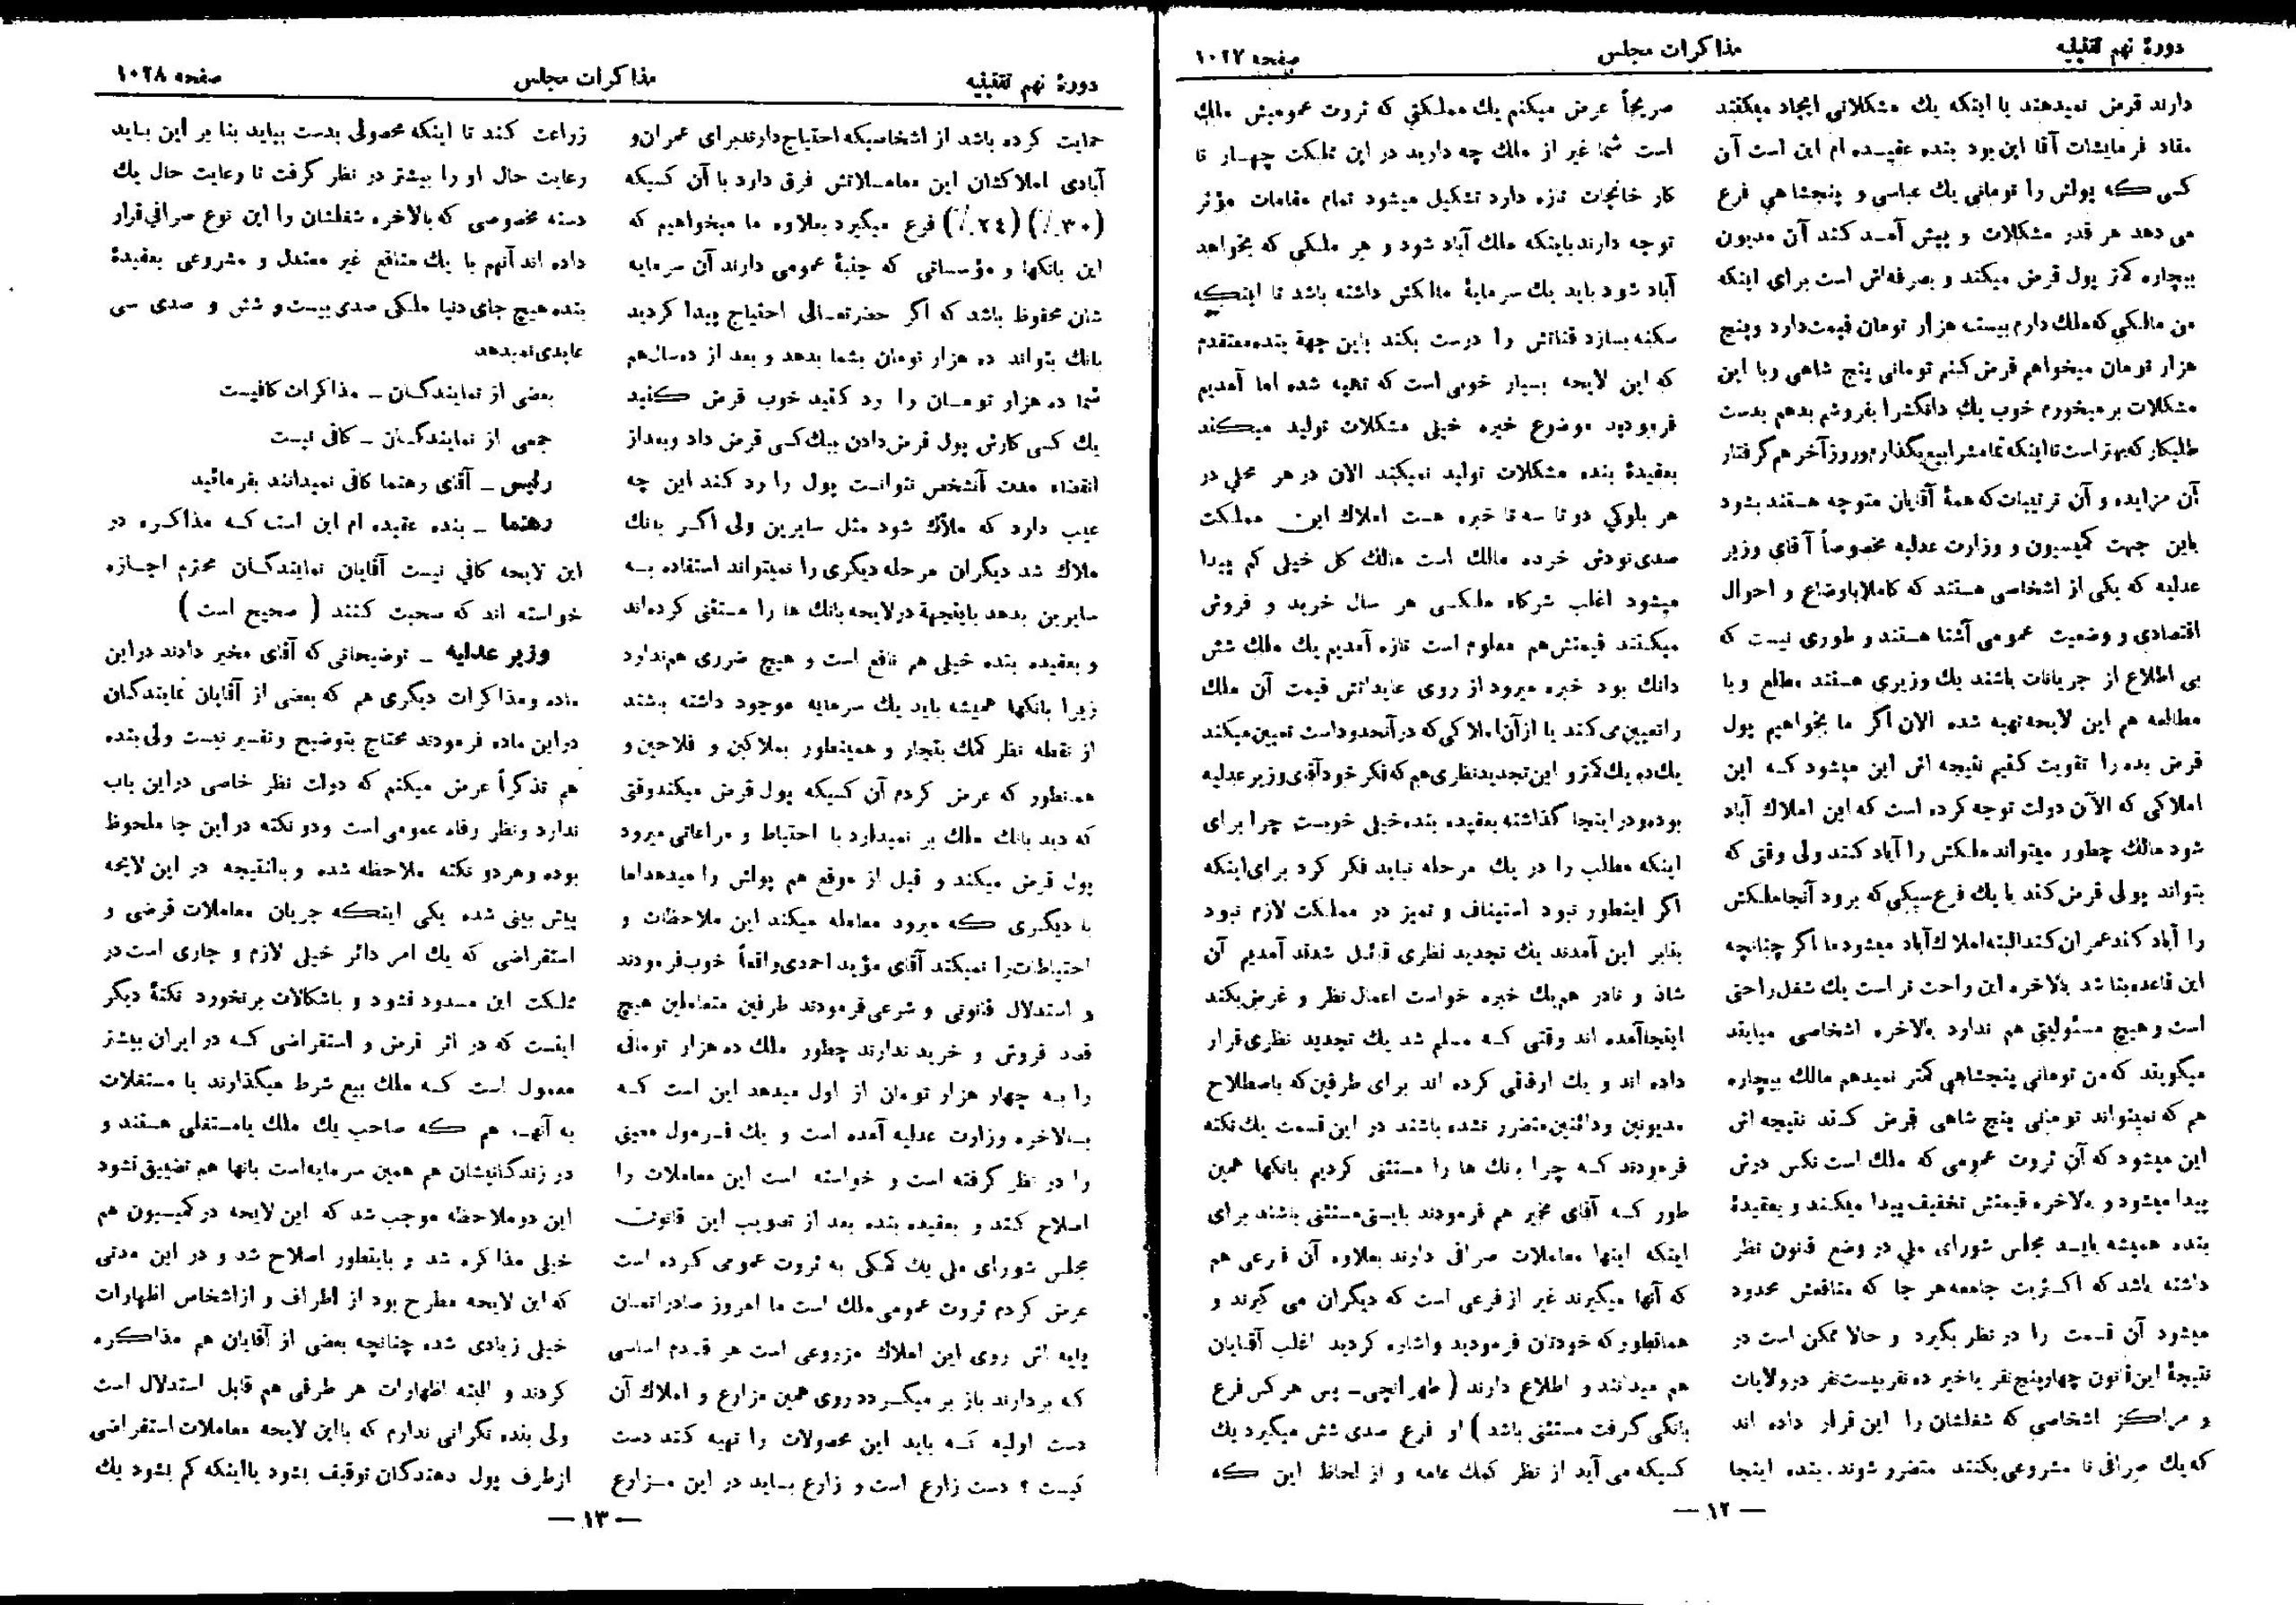 دورهٔ نهم تقنینیه
مذاکرات مجلس
صفحه ۱۰۲۷
دارند قرض نمیدهند یا اینکه یك مشکلاتی ایجاد میکنند
مفاد فرمایشات آقا این بود بنده عقیــده ام این است آن
کسی که پولش را تومانی یك عباسی و پنجشاهی فرع
می دهد هر قدر مشکلات و پیش آمــد کند آن مدیون
بیچاره کمتر پول قرض میکند و بصرفه‌اش است برای اینکه
من مالکی که ملك دارم بیست هزار تومان قیمت دارد و پنج
هزار تومان میخواهم قرض کنم تومانی پنج شاهی و با این
مشکلات برمیخورم خوب یك دانگش را بفروشم بدهم بدست
طلبکار که بهتر است تا اینکه تمامش را بیع بگذارم و روز آخر هم گرفتار
آن مزایده و آن ترتیبات که همهٔ آقایان متوجه هستند بشود
باین جهت کمیسیون و وزارت عدلیه مخصوصاً آقای وزیر
عدلیه که یکی از اشخاصی هستند که کاملا باوضاع و احوال
اقتصادی و وضعیت عمومی آشنا هستند و طوری نیست که
بی اطلاع از جریانات باشند یك وزیری هستند مطلع و با
مطالعه هم این لایحه تهیه شده الان اگر ما بخواهیم پول
قرض بده را تقویت کنیم نتیجه اش این میشود کــه این
املاکی که الآن دولت توجه کرده است که این املاك آباد
شود مالك چطور میتواند ملکش را آباد کند ولی وقتی که
بتواند پولی قرض کند با یك فرع سبکی که برود آنجا ملکش
را آباد کند عمران کند البته املاك آباد میشود اما اگر چنانچه
این قاعده بنا شد بالاخره این راحت تر است یك شغل راحتی
است و هیچ مسئولیتی هم ندارد بالاخره اشخاصی میایند
میگویند که من تومانی پنجشاهی کمتر نمیدهم مالك بیچاره
هم که نمیتواند تومانی پنج شاهی قرض کــند نتیجه اش
این میشود که آن ثروت عمومی که ملك است نکس درش
پیدا میشود و بالاخره قیمتش تخفیف پیدا میکند و بعقیدهٔ
بنده همیشه بایــد مجلس شورای ملی در وضع قانون نظر
داشته باشد که اکــثریت جامعه هر جا که منافعش محدود
میشود آن قسمت را در نظر بگیرد و حالا ممکن است در
نتیجهٔ این قانون چهار پنج نفر یا خیر ده نفر بیست نفر در ولایات
و مراکز اشخاصی که شغلشان را این قرار داده اند
که یك صرافی نا مشروعی بکنند متضرر شوند. بنده اینجا
صریحاً عرض میکنم یك مملکتی که ثروت عمومیش ملك
است شما غیر از ملك چه دارید در این مملکت چهــار تا
کار خانجات تازه دارد تشکیل میشود تمام مقامات مؤثر
توجه دارند باینکه ملك آباد شود و هر ملکی که بخواهد
آباد شود باید یك سرمایهٔ مالکش داشته باشد تا اینکه
سکنه بسازد قناتش را درست بکند باین جهة بنده معتقدم
که این لایحه بسیار خوبی است که تهیه شده اما آمدیم
فرمودید موضوع خبره خیلی مشکلات تولید میکند
بعقیدهٔ بنده مشکلات تولید نمیکند الان در هر محلی در
هر بلوکی دو تا سه تا خبره هست املاك این مملکت
صدی نودش خرده مالك است مالك کل خیلی کم پیدا
میشود اغلب شرکاء ملکــی هر سال خرید و فروش
میکنند قیمتش هم معلوم است تازه آمدیم یك ملك شش
دانك بود خبره میرود از روی عایداتش قیمت آن ملك
را تعیین می کند یا از آن املاکی که در آنحدود است تعیین میکند
یك ده یك کمتر و این تجدید نظری هم که فکر خود آقای وزیر عدلیه
بوده و در اینجا گذاشته بعقیده بنده خیلی خوبست چرا برای
اینکه مطلب را در یك مرحله نباید فکر کرد برای اینکه
اگر اینطور نبود استیناف و تمیز در مملکت لازم نبود
بنابر این آمدند یك تجدید نظری قائل شدند آمدیم آن
شاذ و نادر هم یك خبره خواست اعمال نظر و غرض بکند
اینجا آمده اند وقتی کــه مسلم شد یك تجدید نظری قرار
داده اند و یك ارفاقی کرده اند برای طرفین که باصطلاح
مدیونین و دائنین متضرر نشده باشند در این قسمت یك نکته
فرمودند کــه چرا بانك ها را مستثنی کردیم بانکها همین
طور کــه آقای مخبر هم فرمودند بایستی مستثنی باشند برای
اینکه اینها معاملات صرافی دارند بعلاوه آن فرعی هم
که آنها میگیرند غیر از فرعی است که دیگران می گیرند و
همانطور که خودتان فرمودید و اشاره کردید اغلب آقایان
هم میدانند و اطلاع دارند ( طهرانچی ــ پس هر کس فرع
بانکی گرفت مستثنی باشد ) او فرع صدی شش میگیرد یك
کسیکه می آید از نظر کمك عامه و از لحاظ این که
— ۱۲ —
دورهٔ نهم تقنینیه
مذاکرات مجلس
صفحه ۱۰۲۸
حمایت کرده باشد از اشخاصیکه احتیاج دارند برای عمران و
آبادی املاکشان این معامــلاتش فرق دارد با آن کسیکه
(۳۰٪) (۲٤٪) فرع میگیرد بعلاوه ما میخواهیم که
این بانکها و مؤسساتی که جنبهٔ عمومی دارند آن سرمایه
شان محفوظ باشد که اگر حضرتعــالی احتیاج پیدا کردید
بانك بتواند ده هزار تومان بشما بدهد و بعد از ده سال هم
شما ده هزار تومــان را رد کنید خوب قرض کنید
یك کسی کارش پول قرض دادن بیك کسی قرض داد و بعد از
انقضاء مدت آنشخص نتوانست پول را رد کند این چه
عیب دارد که ملاك شود مثل سایرین ولی اگــر بانك
ملاك شد دیگران مرحله دیگری را نمیتواند استفاده بــه
سایرین بدهد باینجهة در لایحه بانك ها را مستثنی کرده‌اند
و بعقیده بنده خیلی هم نافع است و هیچ ضرری هم ندارد
زیرا بانکها همیشه باید یك سرمایه موجود داشته باشند
از نقطه نظر کمك بتجار و همینطور بملاکین و فلاحین و
همانطور که عرض کردم آن کسیکه پول قرض میکند وقتی
که دید بانك ملك بر نمیدارد با احتیاط و مراعاتی میرود
پول قرض میکند و قبل از موقع هم پولش را میدهد اما
با دیگــری که میرود معامله میکند این ملاحظات و
احتیاطات را نمیکند آقای مؤید احمدی واقعاً خوب فرمودند
و استدلال قانونی و شرعی فرمودند طرفین متعاملین هیچ
قصد فروش و خرید ندارند چطور ملك ده هزار تومانی
را بــه چهار هزار تومان از اول میدهد این است کــه
بــالاخره وزارت عدلیه آمده است و یك فــرمول معینی
را در نظر گرفته است و خواسته است این معاملات را
اصلاح کند و بعقیده بنده بعد از تصویب این قانون
مجلس شورای ملی یك کمکی به ثروت عمومی کرده است
عرض کردم ثروت عمومی ملك است ما امروز صادراتمــان
پایه اش روی این املاك مزروعی است هر قــدم اساسی
که بردارند باز بر میگــردد روی همین مزارع و املاك آن
دست اولیه کــه باید این محصولات را تهیه کند دست
کیست ؟ دست زارع است و زارع بــاید در این مــزارع
زراعت کند تا اینکه محصولی بدست بیاید بنا بر این بــاید
رعایت حال او را بیشتر در نظر گرفت تا رعایت حال یك
دسته مخصوصی که بالاخره شغلشان را این نوع صرافی قرار
داده اند آنهم با یك منافع غیر معتدل و مشروعی بعقیدهٔ
بنده هیچ جای دنیا ملکی صدی بیست و شش و صدی سی
عایدی نمیدهد
بعضی از نمایندگــان ــ مذاکرات کافیست
جمعی از نمایندگــان ــ کافی نیست
رئیس ــ آقای رهنما کافی نمیدانند بفرمائید
رهنما ــ بنده عقیده ام این است کــه مذاکــره در
این لایحه کافی نیست آقایان نمایندگــان محترم اجــازه
خواسته اند که صحبت کنند ( صحیح است )
وزیر عدلیه ــ توضیحاتی که آقای مخبر دادند در این
ماده و مذاکرات دیگری هم که بعضی از آقایان نمایندگان
در این ماده فرمودند محتاج بتوضیح و تفسیر نیست ولی بنده
هم تذکراً عرض میکنم که دولت نظر خاصی در این باب
ندارد و نظر رفاه عمومی است و دو نکته در این جا ملحوظ
بوده و هر دو نکته ملاحظه شده و بالنتیجه در این لایحه
پیش بینی شده یکی اینکه جریان معاملات قرضی و
استقراضی که یك امر دائر خیلی لازم و جاری است در
مملکت این مسدود نشود و باشکالات بر نخورد نکتهٔ دیگر
اینست که در اثر قرض و استقراضی کــه در ایران بیشتر
معمول است کــه ملك بیع شرط میگذارند یا مستغلات
به آنهــا هم که صاحب یك ملك یا مستغلی هستند و
در زندگانیشان هم همین سرمایه است بانها هم تضییق نشود
این دو ملاحظه موجب شد که این لایحه در کمیسیون هم
خیلی مذاکره شد و باینطور اصلاح شد و در این مدتی
که این لایحه مطرح بود از اطراف و از اشخاص اظهارات
خیلی زیادی شده چنانچه بعضی از آقایان هم مذاکره
کردند و البته اظهارات هر طرفی هم قابل استدلال است
ولی بنده نگرانی ندارم که با این لایحه معاملات استقراضی
از طرف پول دهندگان توقیف بشود یا اینکه کم بشود یك
— ۱۳ —